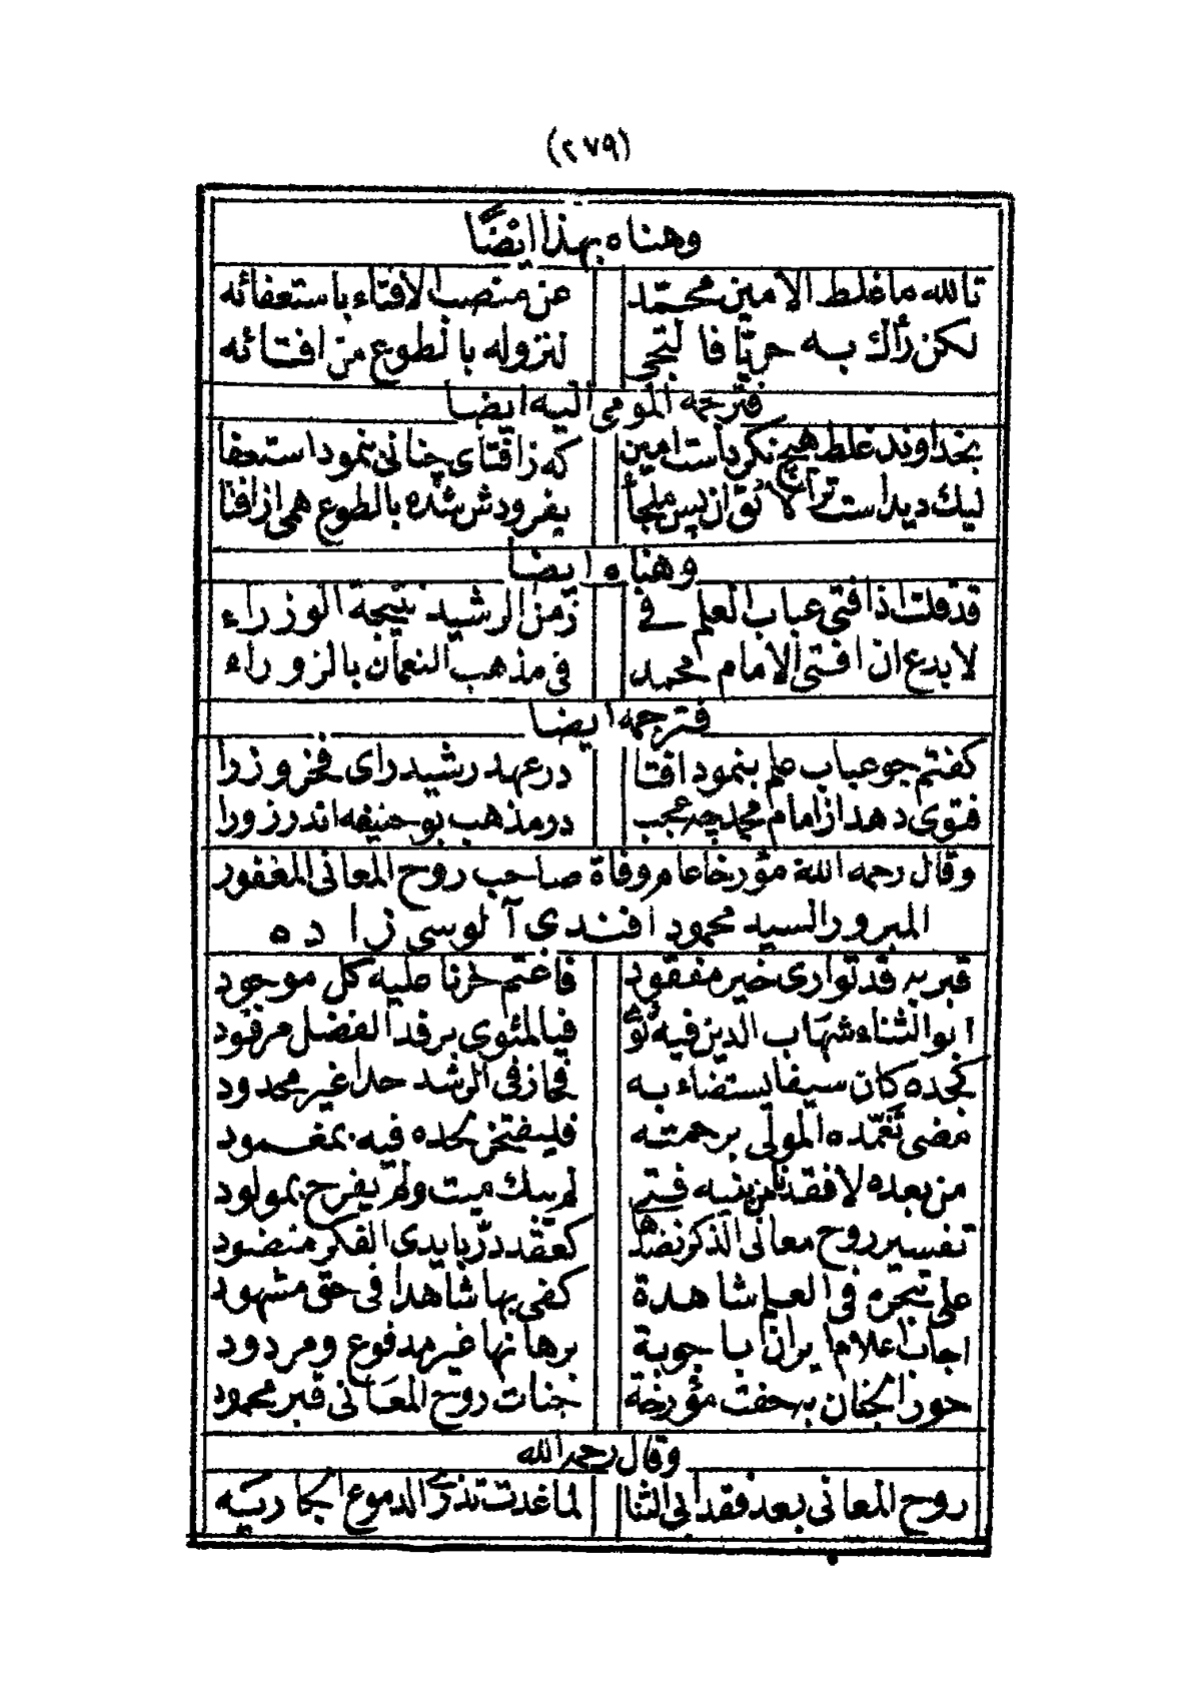 (٢٧٩)
وهناه بهذا ايضًا
تالله ما غلط الامين محمّد عن منصب الافتاء باستعفائه
لكن رأك به حريّا فالتجى لنزوله بالطوع من افتائه
فترجمه المومى اليه ايضا
بخداوند غلط هيچ نكرد است امين كه ز افتاى چنانى بنمود استعفا
ليك ديد است ترا لائق ان پس ملجأ بفرودش شده بالطوع همى از افتا
وهناه ايضا
قد قلت اذ افتى عباب العلم فى زمن الرشيد نتيجة الوزراء
لا بدع ان افتى الامام محمد فى مذهب النعمان بالزوراء
فترجمه ايضا
كفتم چو عباب علم بنمود افتا در عهد رشيد راى فخر وزرا
فتوى دهد از امام محمد چه عجب در مذهب بو حنيفه اندر زورا
وقال رحمه الله مؤرخا عام وفاة صاحب روح المعانى المغفور
المبرور السيد محمود افندى آلوسى زاده
قبر به قد توارى خير مفقود فاغتم حزنا عليه كل موجود
ابو الثناء شهاب الدين فيه ثوى فيا لمثوى برفد الفضل مرفود
كجده كان سيفا يستضاء به فحاز فى الرشد حدا غير محدود
مضى تغمّده المولى برحمته فليفتخر لحده فيه بمغمود
من بعده لا فقدنا من بنيه فتى لم يبك ميت ولم يفرح بمولود
تفسير روح معانى الذكر نضدها كعقد درّ بايدى الفكر منضود
على تبحره فى العلم شاهدة كفى بها شاهدا فى حق مشهود
اجاب اعلام ايران باجوبة برهانها غير مدفوع ومردود
حور الجنان به حفت مؤرخة جنات روح المعانى قبر محمود
وقال رحمه الله
روح المعانى بعد فقد ابى الثنا لما غدت تذرى الدموع الجاريه